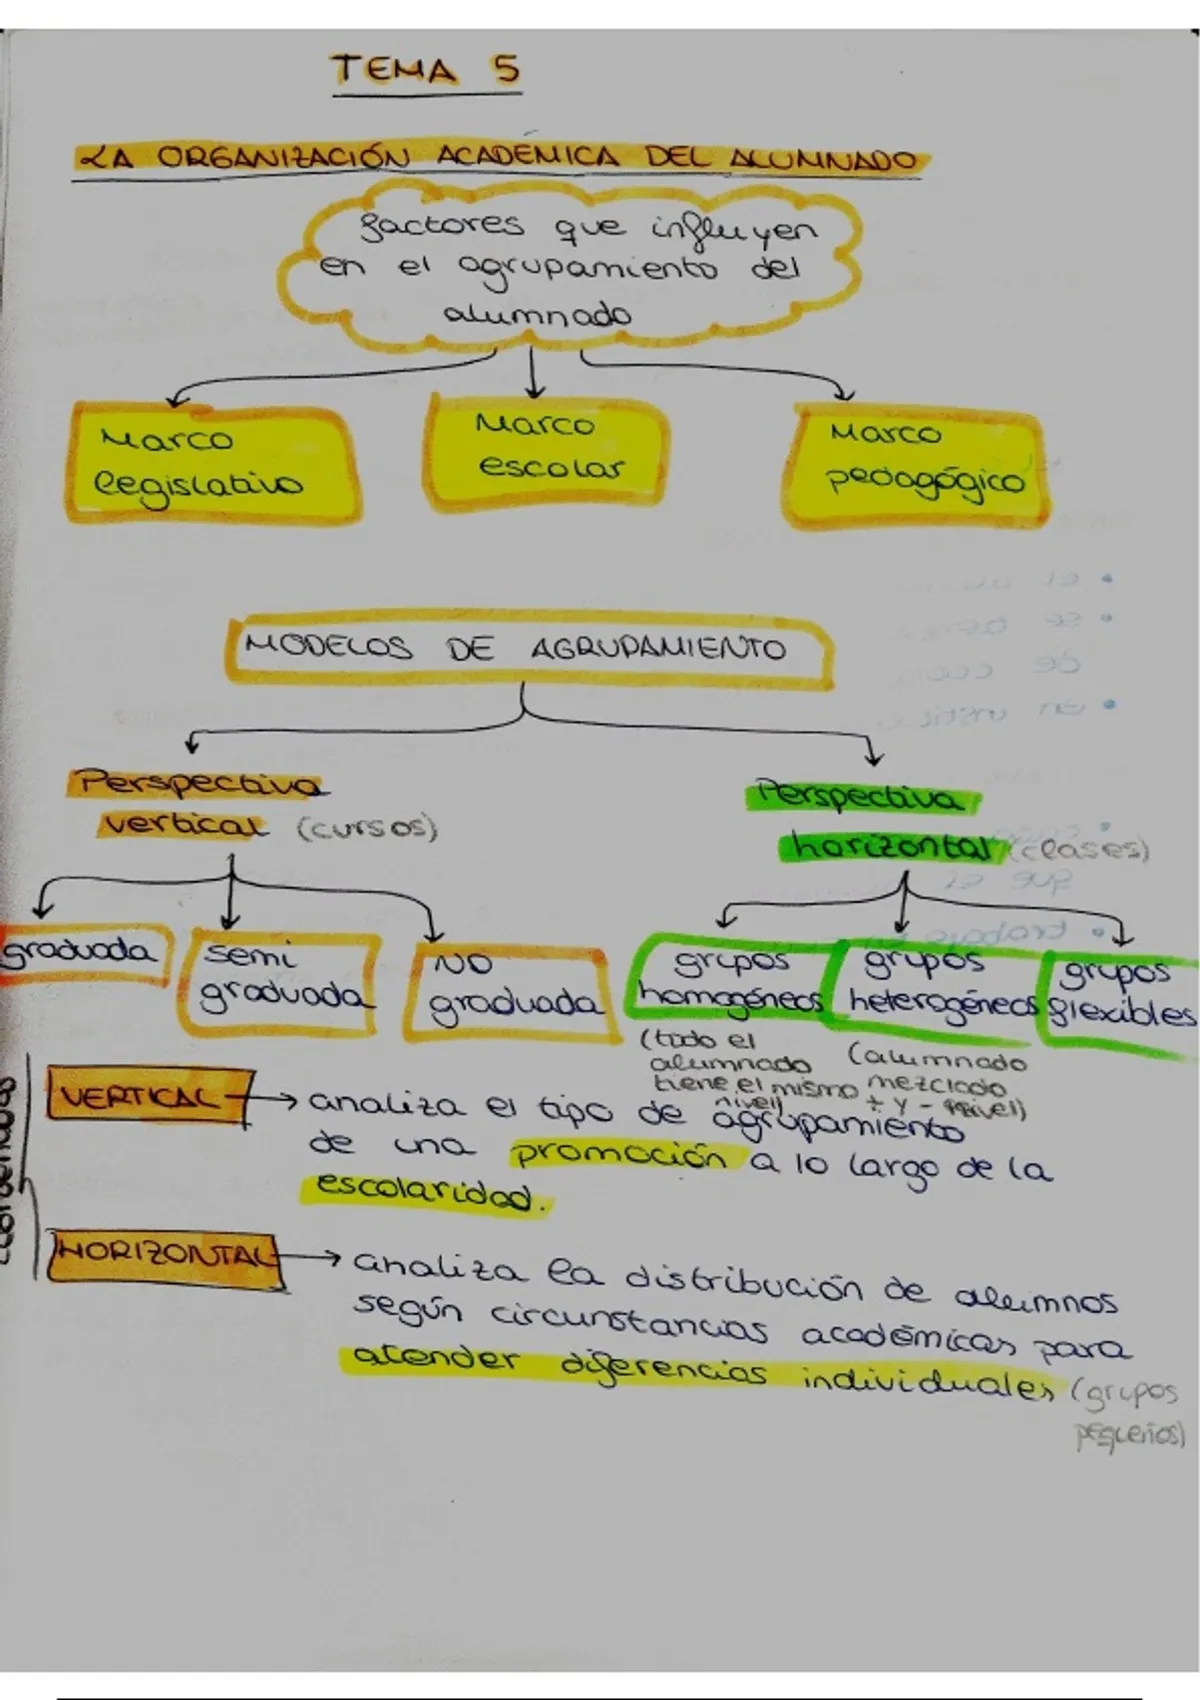 TEMA 5
LA ORGANIZACIÓN ACADÉMICA DEL ALUMNADO
factores que influyen
en el agrupamiento del
alumnado
Marco
legislativo
Marco
escolar
Marco
pedagógico
MODELOS DE AGRUPAMIENTO
Perspectiva
vertical (cursos)
Perspectiva
horizontal (clases)
graduada
semi
graduada
NO
graduada
grupos
homogéneos
(todo el
alumnado
tiene el mismo
nivel)
grupos
heterogéneos
(alumnado
mezclado
+ y - nivel)
grupos
flexibles
VERTICAL → analiza el tipo de agrupamiento
de una promoción a lo largo de la
escolaridad.
HORIZONTAL → analiza la distribución de alumnos
según circunstancias académicas para
atender diferencias individuales (grupos
pequeños)